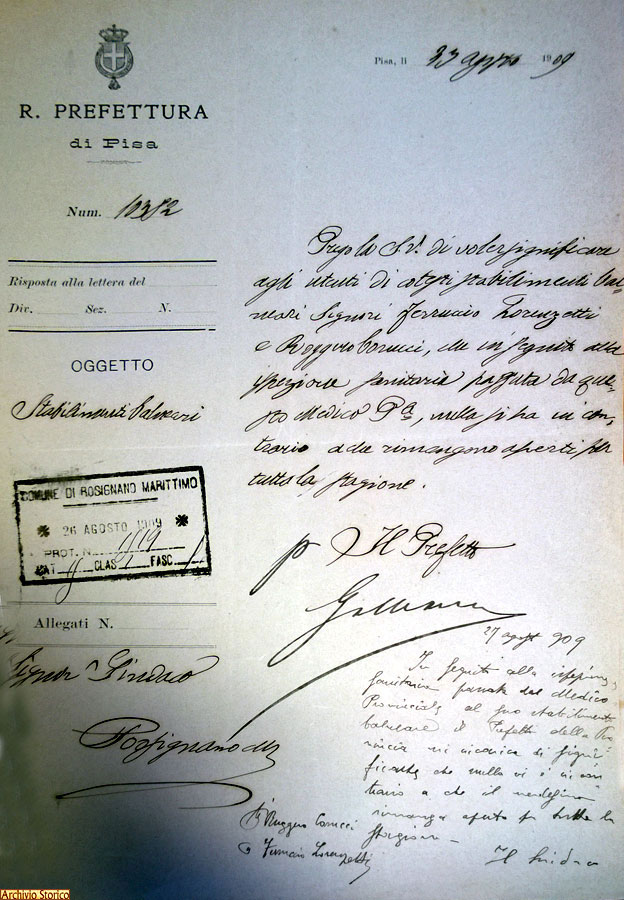 Pisa, li 23 agosto 1909
R. PREFETTURA
di Pisa
Num. 10352
Risposta alla lettera del
Div. Sez. N.
OGGETTO
Stabilimenti balneari
COMUNE DI ROSIGNANO MARITTIMO
26 AGOSTO 1909
PROT. N. 1119
CAT. CLAS. FASC.
Allegati N.
Signor Sindaco
Rosignano M
Prego la S.V. di voler significare
agli utenti di stabilimenti bal-
neari Signori Ferruccio Lorenzetti
e Ruggero Carucci, che in seguito alla
ispezione sanitaria passata da que-
sto Medico P., nulla si ha in con-
trario a che rimangono aperti per
tutta la stagione.
p Il Prefetto
27 agosto 909
In seguito alla ispezione
sanitaria passata dal Medico
Provinciale al suo stabilimento
balneare il Prefetto della Pro
vincia mi incarica di signi
ficarle che nulla vi è in con
trario a che il medesimo
rimanga aperto per tutta la
stagione
Il Sindaco
Ruggero Carucci
Ferruccio Lorenzetti
Archivio Storico